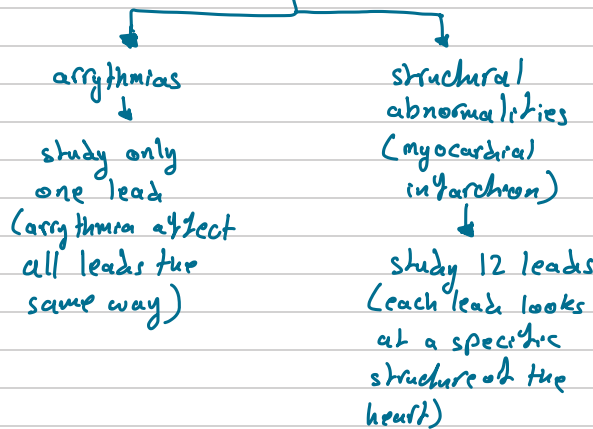 arrythmias
study only
one lead
(arrythmia affect
all leads the
same way)
structural
abnormalities
(myocardial
infarction)
study 12 leads
(each lead looks
at a specific
structure of the
heart)